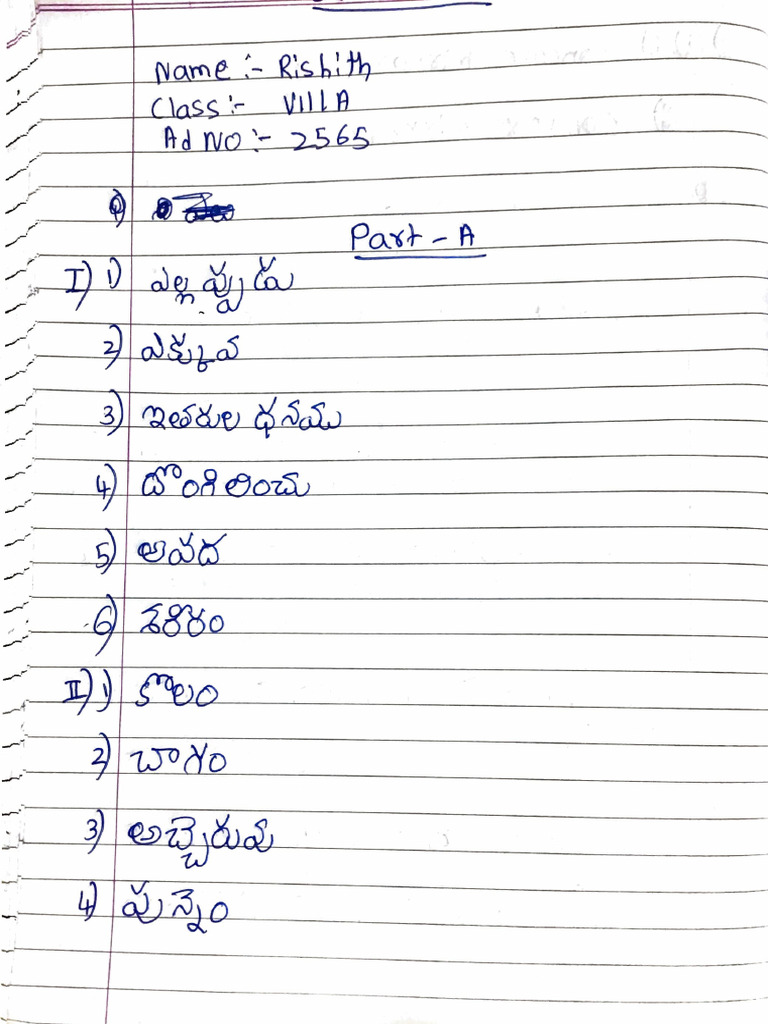 Name :- Rishith
Class :- VIII A
Ad No :- 2565
Part - A
I) 1) ఎల్లప్పుడు
2) ఎక్కువ
3) ఇతరుల ధనము
4) దొంగిలించు
5) ఆపద
6) శరీరం
II) 1) కాలం
2) చాగం
3) అచ్చెరువు
4) పున్నెం